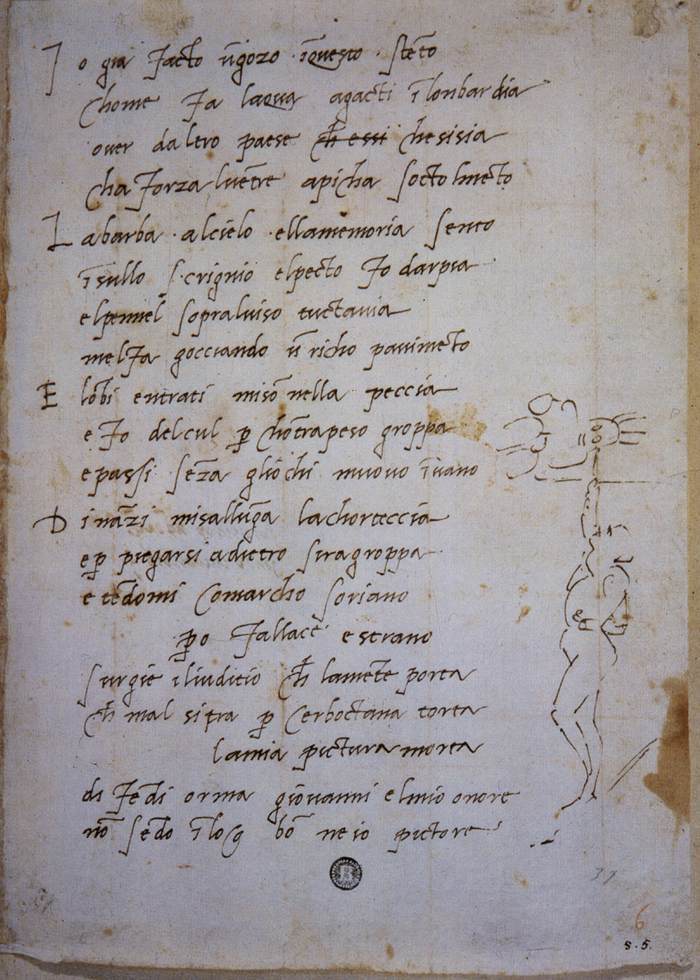 I o gia facto ūgozo īquesto steto
chome fa laqua agacti ī lonbardia
over daltro paese ch̄ essi chesisia
cha forza lvētre apicha socto lmēto
L abarba alcielo ellamemoria sento
īsullo scrignio elpecto fo darpia
elpennel sopralviso tuctavia
melfa gocciando ū richo pavimēto
E lōbi entrati misō nella peccia
e fo delcul p̱ chōtrapeso groppa
epassi sēza gliochi muovo īvano
D ināzi misallūga lachorteccia
ep̱ piegarsi adietro siragroppa
e tēdomi comarcho soriano
p̱o fallace e strano
surgie iliuditio ch̄ lamēte porta
ch̄ mal sitra p̱ cerboctana torta
lamia pictura morta
difēdi orma giovanni elmio onore
nō sēdo īloco bō ne io pictore
37
6
s. 5.